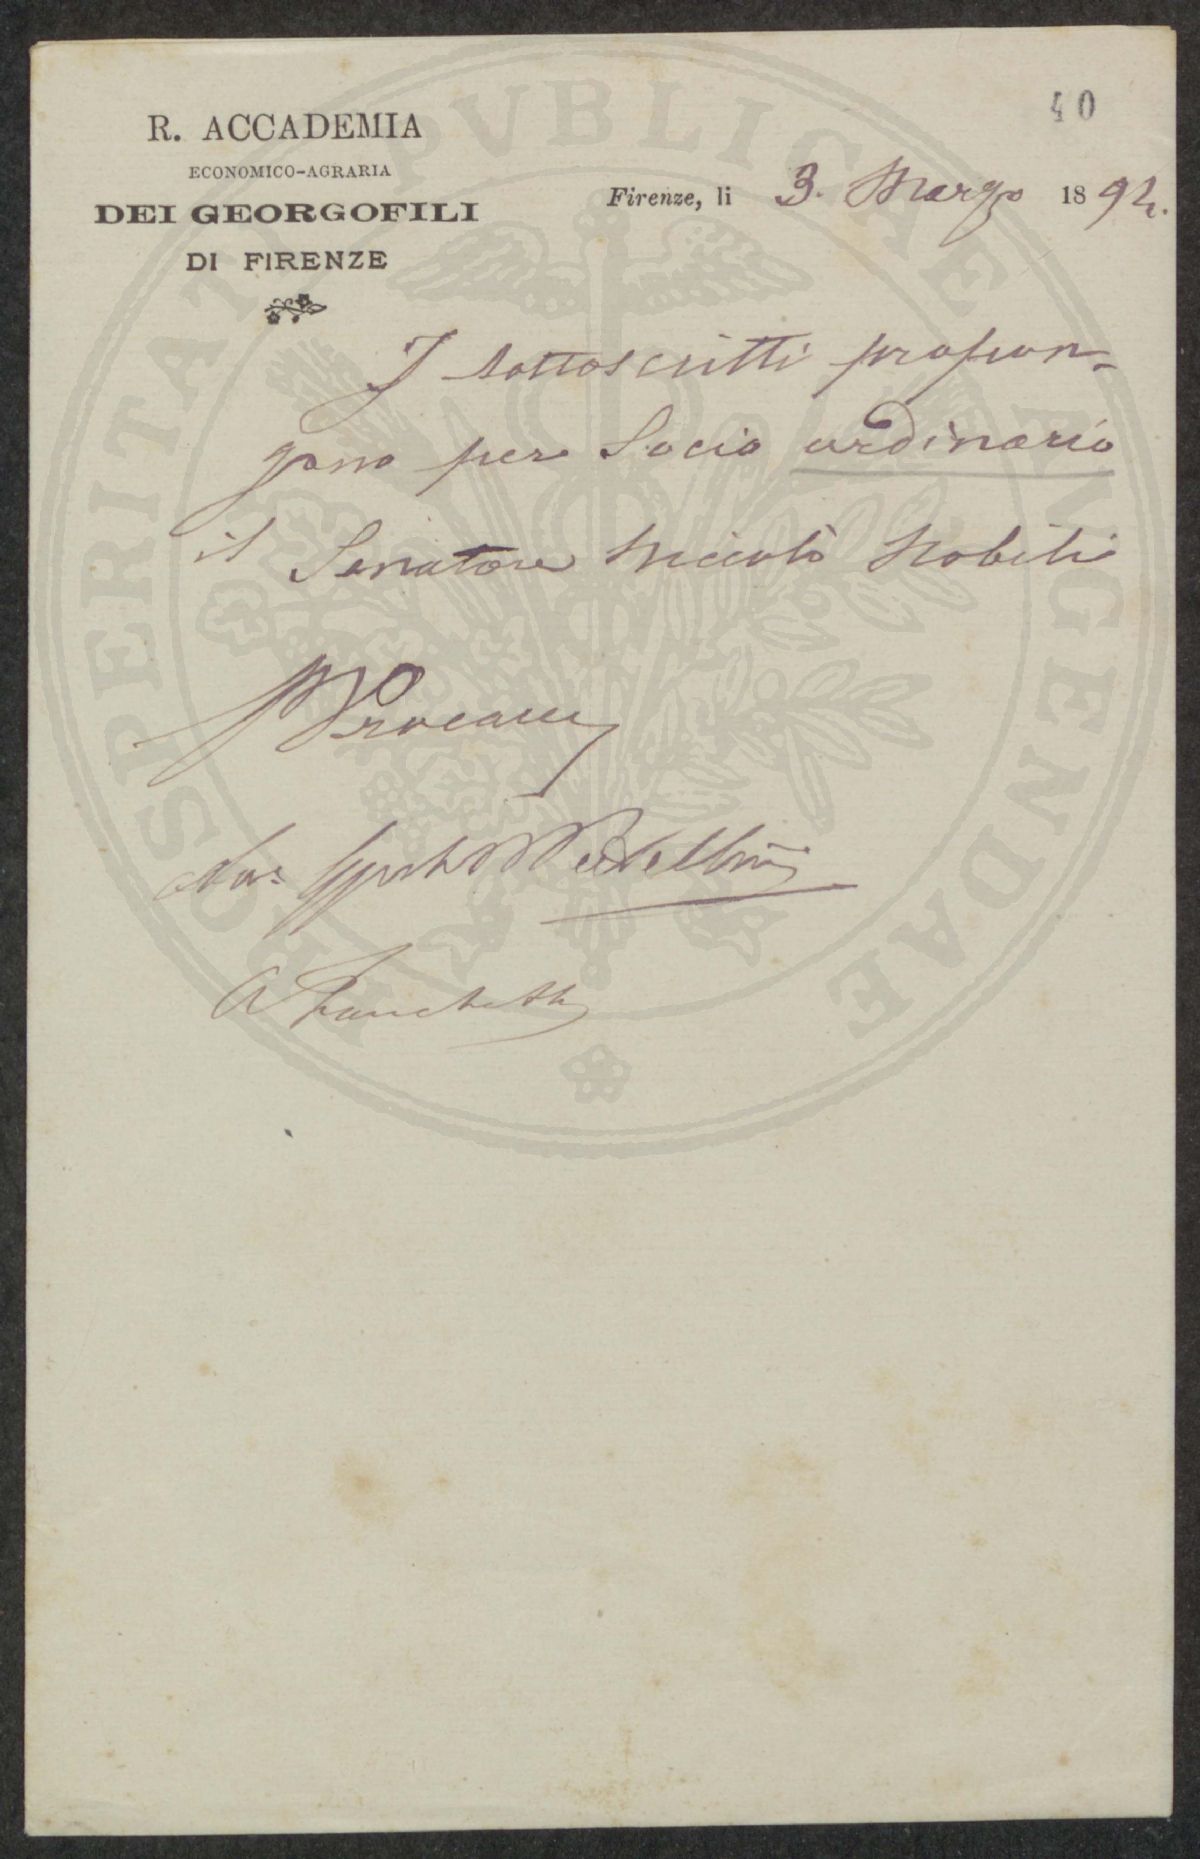 40
R. ACCADEMIA
ECONOMICO-AGRARIA
DEI GEORGOFILI
DI FIRENZE
Firenze, li 3. Marzo 1892.
I sottoscritti propon-
gono per Socio ordinario
il Senatore Niccolò Nobili
A Franchetti
PROSPERITATI PVBLICAE AVGENDAE